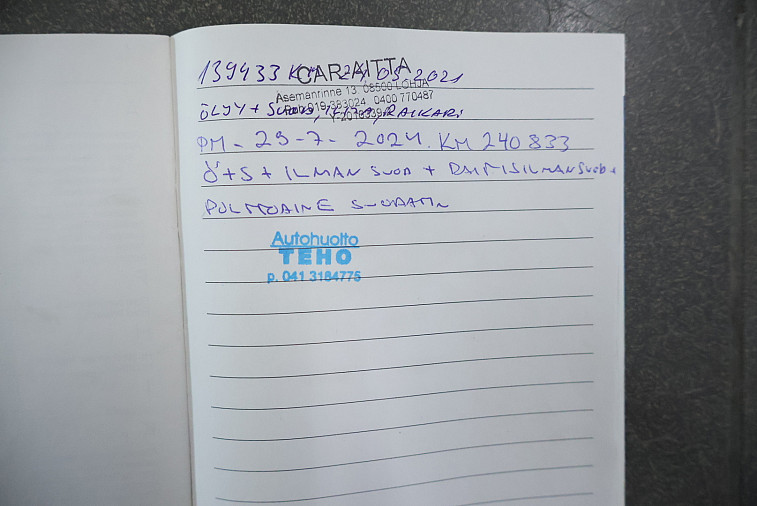 139433 KM 24,05 2021
CAR-AITTA
Asemanrinne 13 08500 LOHJA
Puh. 019-383024 0400 770487
ÖLJY +
PM - 29-7- 2024. KM 240833
Ö+S + ILMAN SUOD + RAITISILMANSUOD +
POLTTOAINE SUODATIN
Autohuolto
TEHO
p. 041 3184775